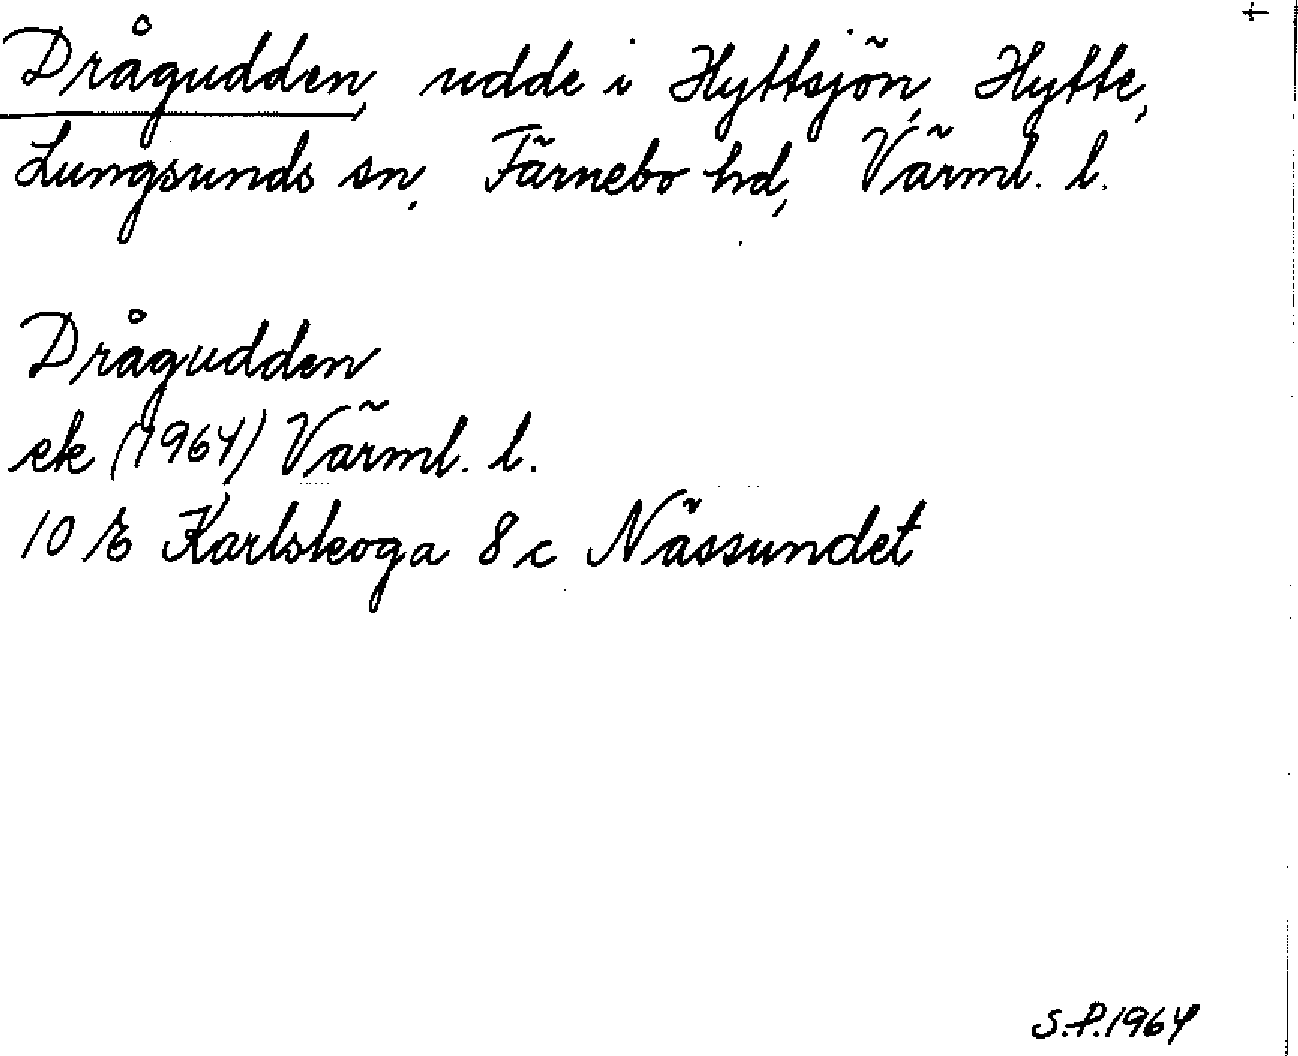 Drågudden, udde i Hyttsjön, Hytte,
Lungsunds sn, Färnebo hd, Värml. l.
Drågudden
ek (1964) Värml. l.
10 E Karlskoga 8 c Nässundet
S.P. 1964